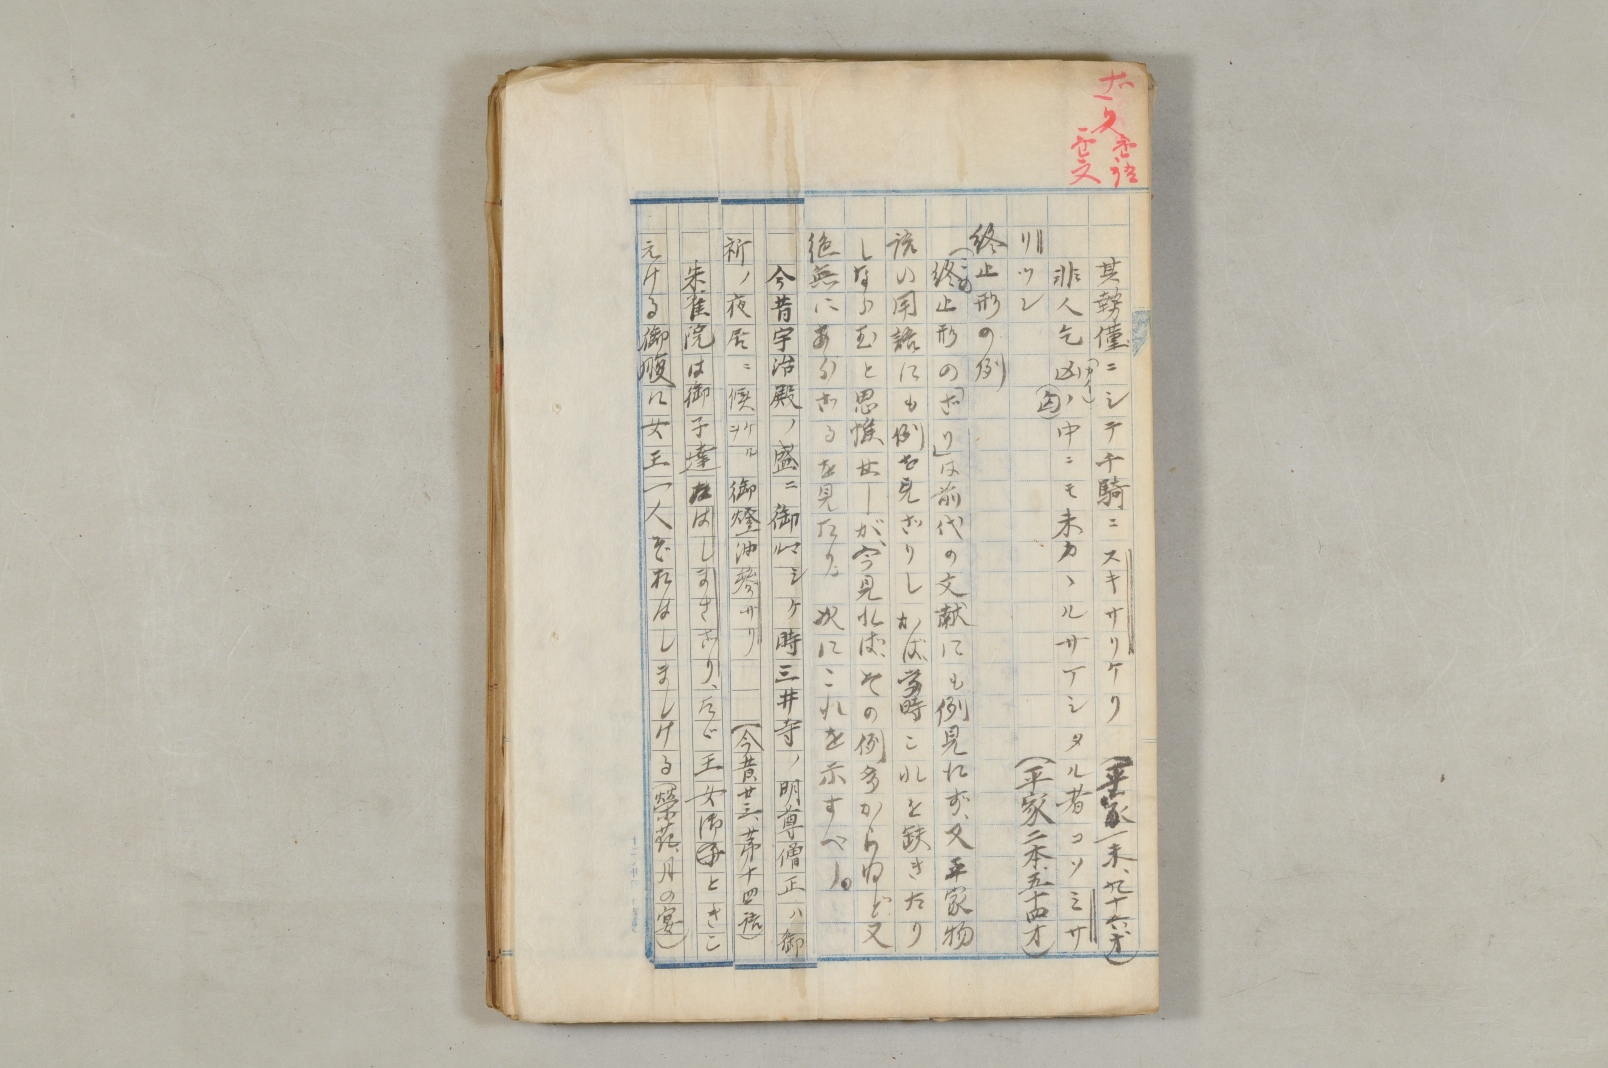 其勢僅ニシテ千騎ニスキサリケリ (平家一末、九十六才)
非人乞凶ノ中ニモ未カヽルサイシタル者コソミサ
リツレ (平家二本、五十四オ)
終止形の例
(この)終止形の「ざり」は前代の文献にも例見れず、又平家物
語の用語にも例を見ざりしかば、当時これを缺きたり
しならむと思惟せしが、今見れば、その例多からねど又
絶無にあらざるを見たり。次にこれを示すべし。
今昔宇治殿ノ盛ニ御マシケル時三井寺ノ明尊僧正ハ御
祈ノ夜居ニ候ケルヲ御燈油参サリ (今昔廿三、第十四語)
朱雀院は御子達おはしまさざり、たゞ王女御ときこ
えける御腹に女王一人ぞおはしましける(榮花、月の宴)